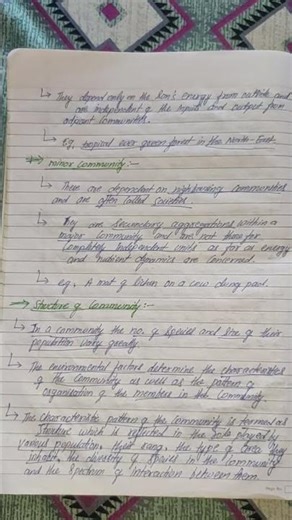 ↳ They depend only on the sun's energy from outside and
are independent of the inputs and output from
adjacent communities.
↳ eg. tropical ever green forest in the North-East.
Minor Community :-
↳ These are dependent on neighbouring communities
and are often called societies.
↳ They are secondary aggregations within a
major community and are not therefore
completely independent units as far as energy
and nutrient dynamics are concerned.
↳ e.g., A mat of lichen on a cow dung pad.
Structure of Community :-
↳ In a community the no. of species and size of their
population vary greatly.
↳ The environmental factors determine the characteristics
of the community as well as the pattern of
organisation of the members in the community
↳ The characteristic pattern of the community is termed as
structure which is reflected in the role played by
various population, their range, the type of area they
inhabit, the diversity of species in the community
and the spectrum of interaction between them.